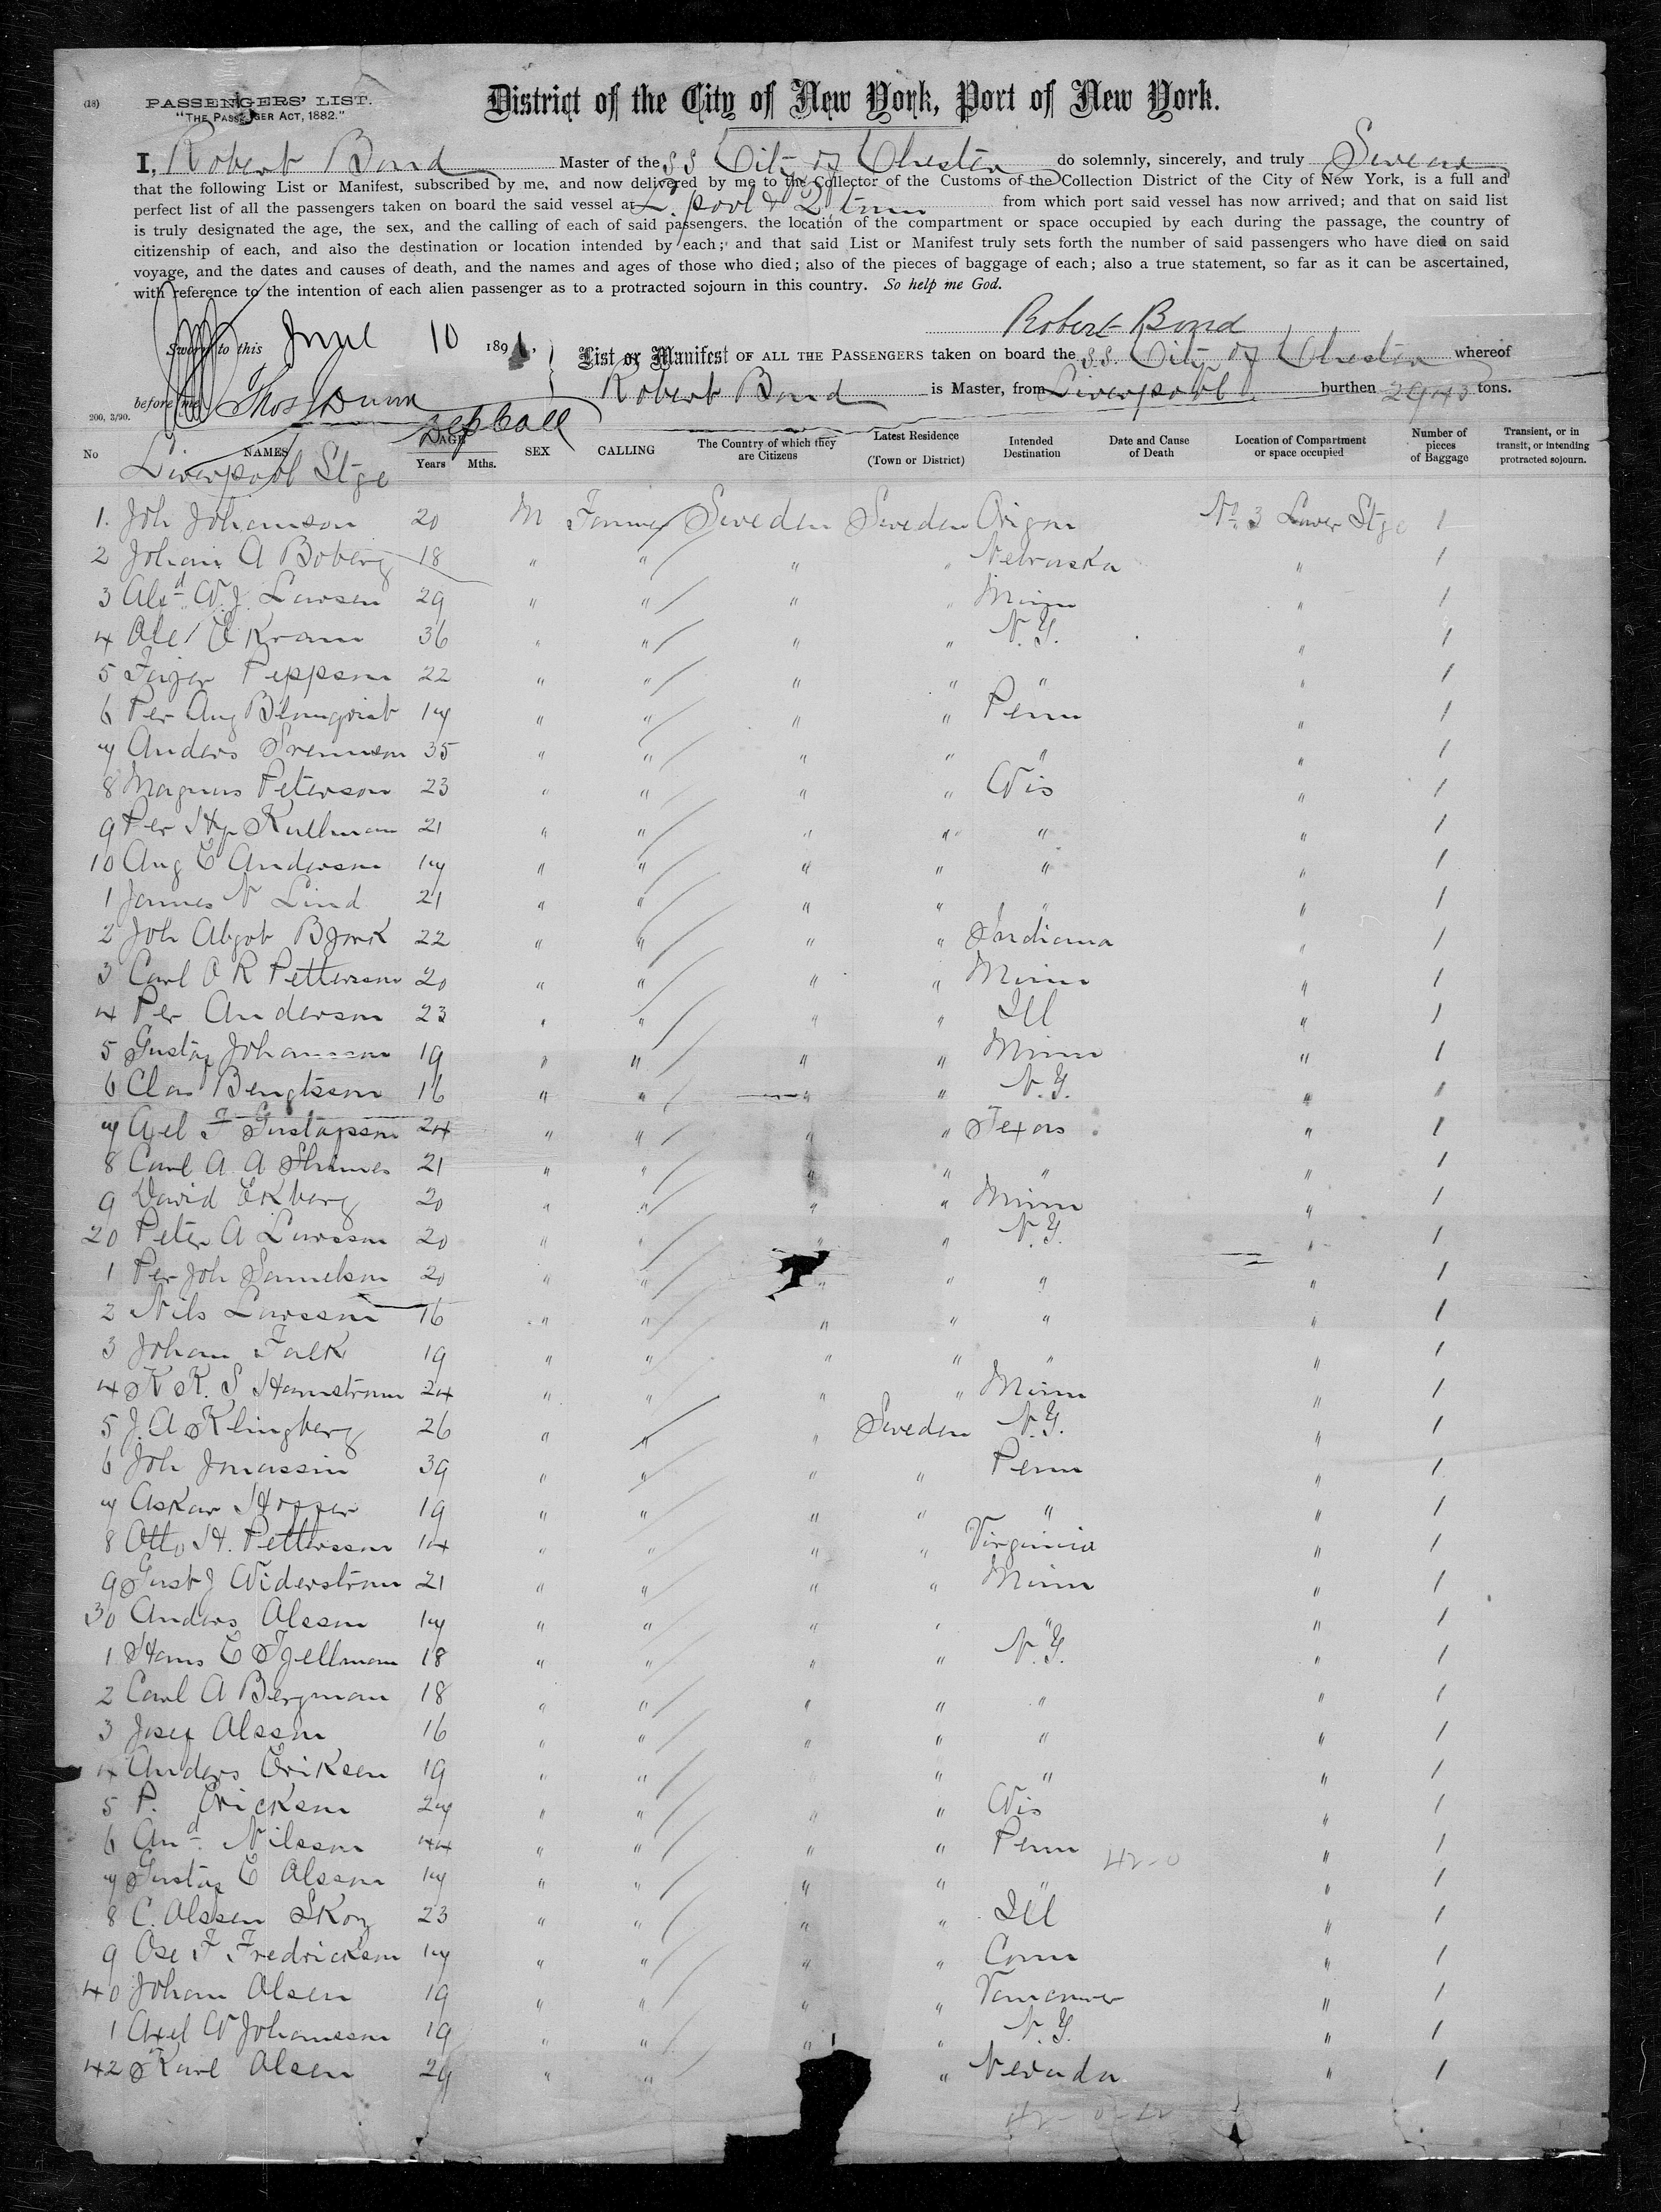 (18)
PASSENGERS' LIST.
"THE PASSENGER ACT, 1882."
District of the City of New York, Port of New York.
I, Robert Bond Master of the SS City of Chester do solemnly, sincerely, and truly Swear
that the following List or Manifest, subscribed by me, and now delivered by me to the Collector of the Customs of the Collection District of the City of New York, is a full and
perfect list of all the passengers taken on board the said vessel at L'pool & Q'town from which port said vessel has now arrived; and that on said list
is truly designated the age, the sex, and the calling of each of said passengers, the location of the compartment or space occupied by each during the passage, the country of
citizenship of each, and also the destination or location intended by each; and that said List or Manifest truly sets forth the number of said passengers who have died on said
voyage, and the dates and causes of death, and the names and ages of those who died; also of the pieces of baggage of each; also a true statement, so far as it can be ascertained,
with reference to the intention of each alien passenger as to a protracted sojourn in this country. So help me God.
Robert Bond
Sworn to this June 10 1891,
List or Manifest OF ALL THE PASSENGERS taken on board the S.S. City of Chester whereof
before me Thos Dunn
Robert Bond is Master, from Liverpool burthen tons.
200, 3/90.
Dep Coll
No NAMES AGE Years Mths. SEX CALLING The Country of which they are Citizens Latest Residence (Town or District) Intended Destination Date and Cause of Death Location of Compartment or space occupied Number of pieces of Baggage Transient, or in transit, or intending protracted sojourn.
Liverpool Stge
1. Joh Johanson 20 M Farmer Sweden Sweden Origon No. 3 Lower Stge 1
2 Johan A Boberg 18 " " " " Nebraska " 1
3 W. J. Larsen 29 " " " " Minn " 1
4 E Kram 36 " " " " N.Y. " 1
5 Peppson 22 " " " " " " 1
6 Per Aug Blomqvist 17 " " " " Penn " 1
7 Anders Svennson 35 " " " " " " 1
8 Magnus Peterson 23 " " " " Wis " 1
9 Per Hj Kullman 21 " " " " " " 1
10 Aug E Anderson 17 " " " " " " 1
1 Jannes N Lind 21 " " " " " " 1
2 Joh Bjork 22 " " " " Indiana " 1
3 Carl O R Petterson 20 " " " " Minn " 1
4 Per Anderson 23 " " " " Ill " 1
5 Gustaf Johansson 19 " " " " Minn " 1
6 Clas Bengtsson 16 " " " " N.Y. " 1
7 Axel F Gustafsson 24 " " " " Texas " 1
8 Carl A A 21 " " " " " " 1
9 David Ekberg 20 " " " " Minn " 1
20 Peter A Larsson 20 " " " " N.Y. " 1
1 Per Joh Samelson 20 " " " " " " 1
2 Nils Larsson 16 " " " " " " 1
3 Johan Falk 19 " " " " " " 1
4 K K. S Hamstrom 24 " " " " Minn " 1
5 J. A Klingberg 26 " " " Sweden N.Y. " 1
6 Joh Jonassin 39 " " " " Penn " 1
7 Askar Hoffer 19 " " " " " " 1
8 Otto H. Pettersson 14 " " " " Virginia " 1
9 Gust J Widerstrom 21 " " " " Minn " 1
30 Anders Olsson 17 " " " " " " 1
1 Hans E Tjellman 18 " " " " N.Y. " 1
2 Carl A Bergman 18 " " " " " " 1
3 Josef Olsson 16 " " " " " " 1
4 Anders Eriksen 19 " " " " " " 1
5 P. Erickson 27 " " " " Wis " 1
6 And Nilsson 44 " " " " Penn " 1
7 Gustaf E Olsson 17 " " " " " " 1
8 C. Olssen Skog 23 " " " " Ill " 1
9 F Fredrickson 17 " " " " Conn " 1
40 Johan Olsen 19 " " " " Vancouver " 1
1 Axel W Johansson 19 " " " " N.Y. " 1
42 Karl Olsen 29 " " " Nevada " 1